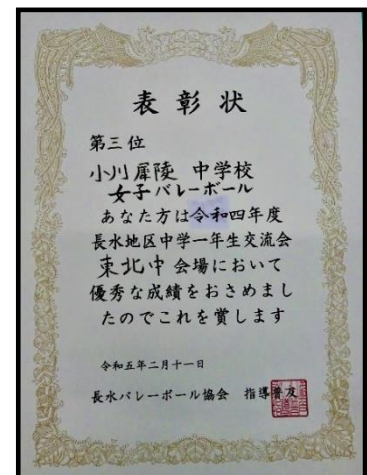 表彰状
第三位
小川犀陵 中学校
女子バレーボール
あなた方は令和四年度
長水地区中学一年生交流会
東北中会場において
優秀な成績をおさめまし
たのでこれを賞します
令和五年二月十一日
長水バレーボール協会 指導普及